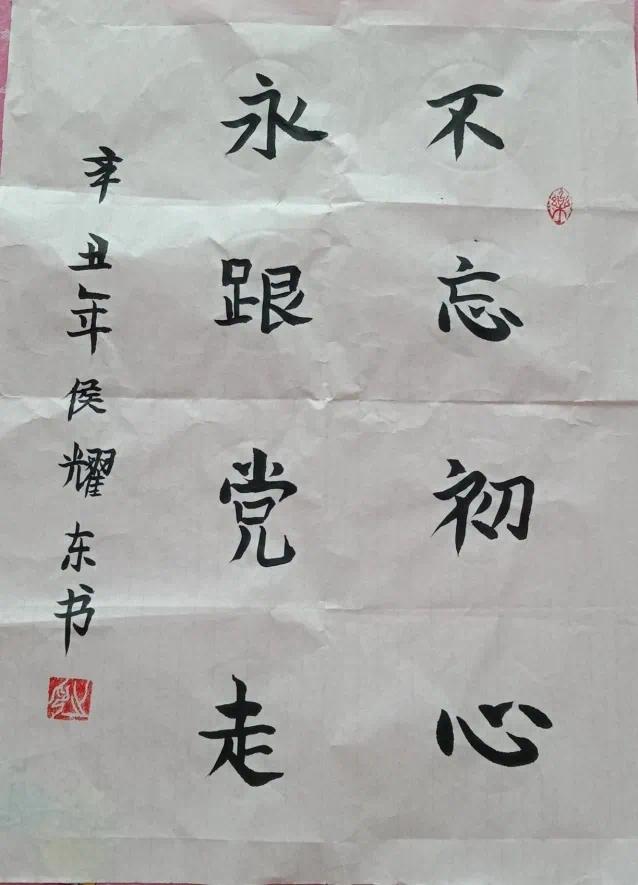 不忘初心
永跟党走
辛丑年侯耀东书